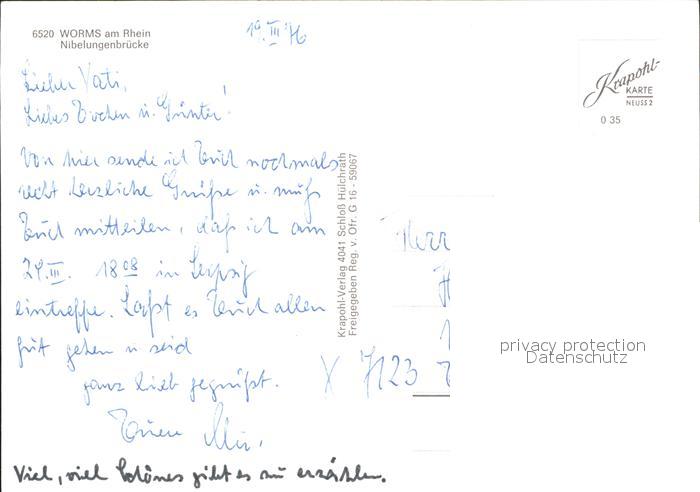 6520 WORMS am Rhein
Nibelungenbrücke
19. III 76
Lieber Vati,
Liebes u. Günter!
Von hier sende ich Euch nochmals
recht herzliche Grüße u. muß
Euch mitteilen, daß ich am
24. III. 18 08 in Leipzig
eintreffe. Laßt es Euch allen
gut gehen u seid
ganz lieb gegrüßt.
Eure
Viel, viel Schönes gibt es zu erzählen.
Krapohl-Verlag 4041 Schloß Hülchrath
Freigegeben Reg. v. Ofr. G 16 - 59067
Krapohl-
KARTE
NEUSS 2
0 35
Herr
H
X 7123
privacy protection
Datenschutz